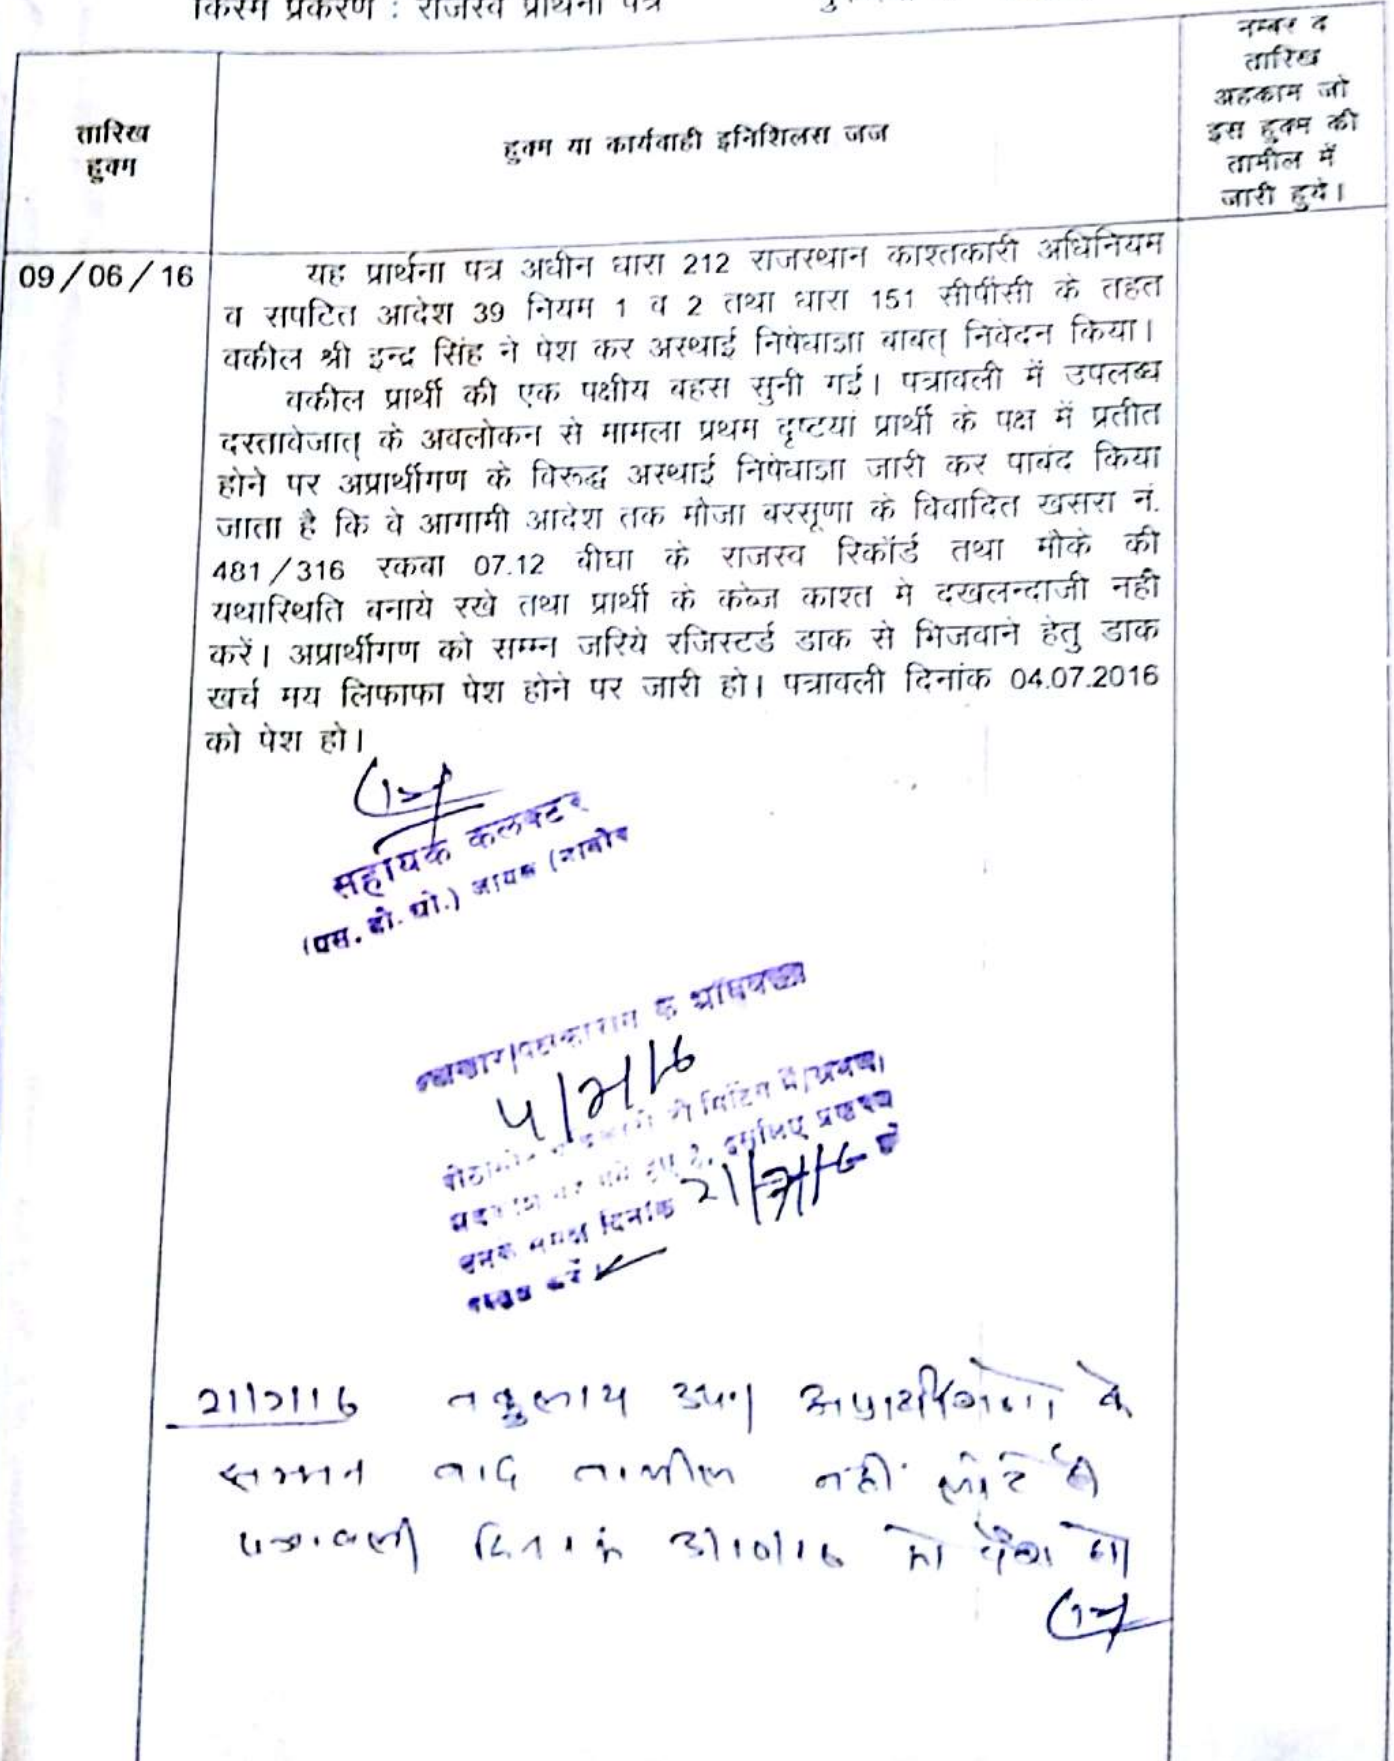 किस्म प्रकरण : राजस्व प्रार्थना पत्र
तारिख
हुक्म
हुक्म या कार्यवाही इनिशिलस जज
नम्बर द
तारिख
अहकाम जो
इस हुक्म की
तामील में
जारी हुये।
09/06/16
यह प्रार्थना पत्र अधीन धारा 212 राजस्थान काश्तकारी अधिनियम
व सपटित आदेश 39 नियम 1 व 2 तथा धारा 151 सीपीसी के तहत
वकील श्री इन्द्र सिंह ने पेश कर अस्थाई निषेधाज्ञा बाबत् निवेदन किया।
वकील प्रार्थी की एक पक्षीय बहस सुनी गई। पत्रावली में उपलब्ध
दस्तावेजात् के अवलोकन से मामला प्रथम दृष्टयां प्रार्थी के पक्ष में प्रतीत
होने पर अप्रार्थीगण के विरूद्ध अस्थाई निषेधाज्ञा जारी कर पाबंद किया
जाता है कि वे आगामी आदेश तक मौजा बरसूणा के विवादित खसरा नं.
481/316 रकबा 07.12 बीघा के राजस्व रिकॉर्ड तथा मौके की
यथास्थिति बनाये रखे तथा प्रार्थी के कब्ज काश्त मे दखलन्दाजी नही
करें। अप्रार्थीगण को सम्मन जरिये रजिस्टर्ड डाक से भिजवाने हेतु डाक
खर्च मय लिफाफा पेश होने पर जारी हो। पत्रावली दिनांक 04.07.2016
को पेश हो।
सहायक कलक्टर
(एस. डी. ओ.) जायल (नागौर
4/7/16
इसलिए प्रकरण
उनके समक्ष दिनांक 21/7/16 को
प्रस्तुत करें।
21/7/16 अप्रार्थीगणो के
सम्मन बाद तामील नही लौटे है
पत्रावली दिनांक 3/10/16 को पेश हो